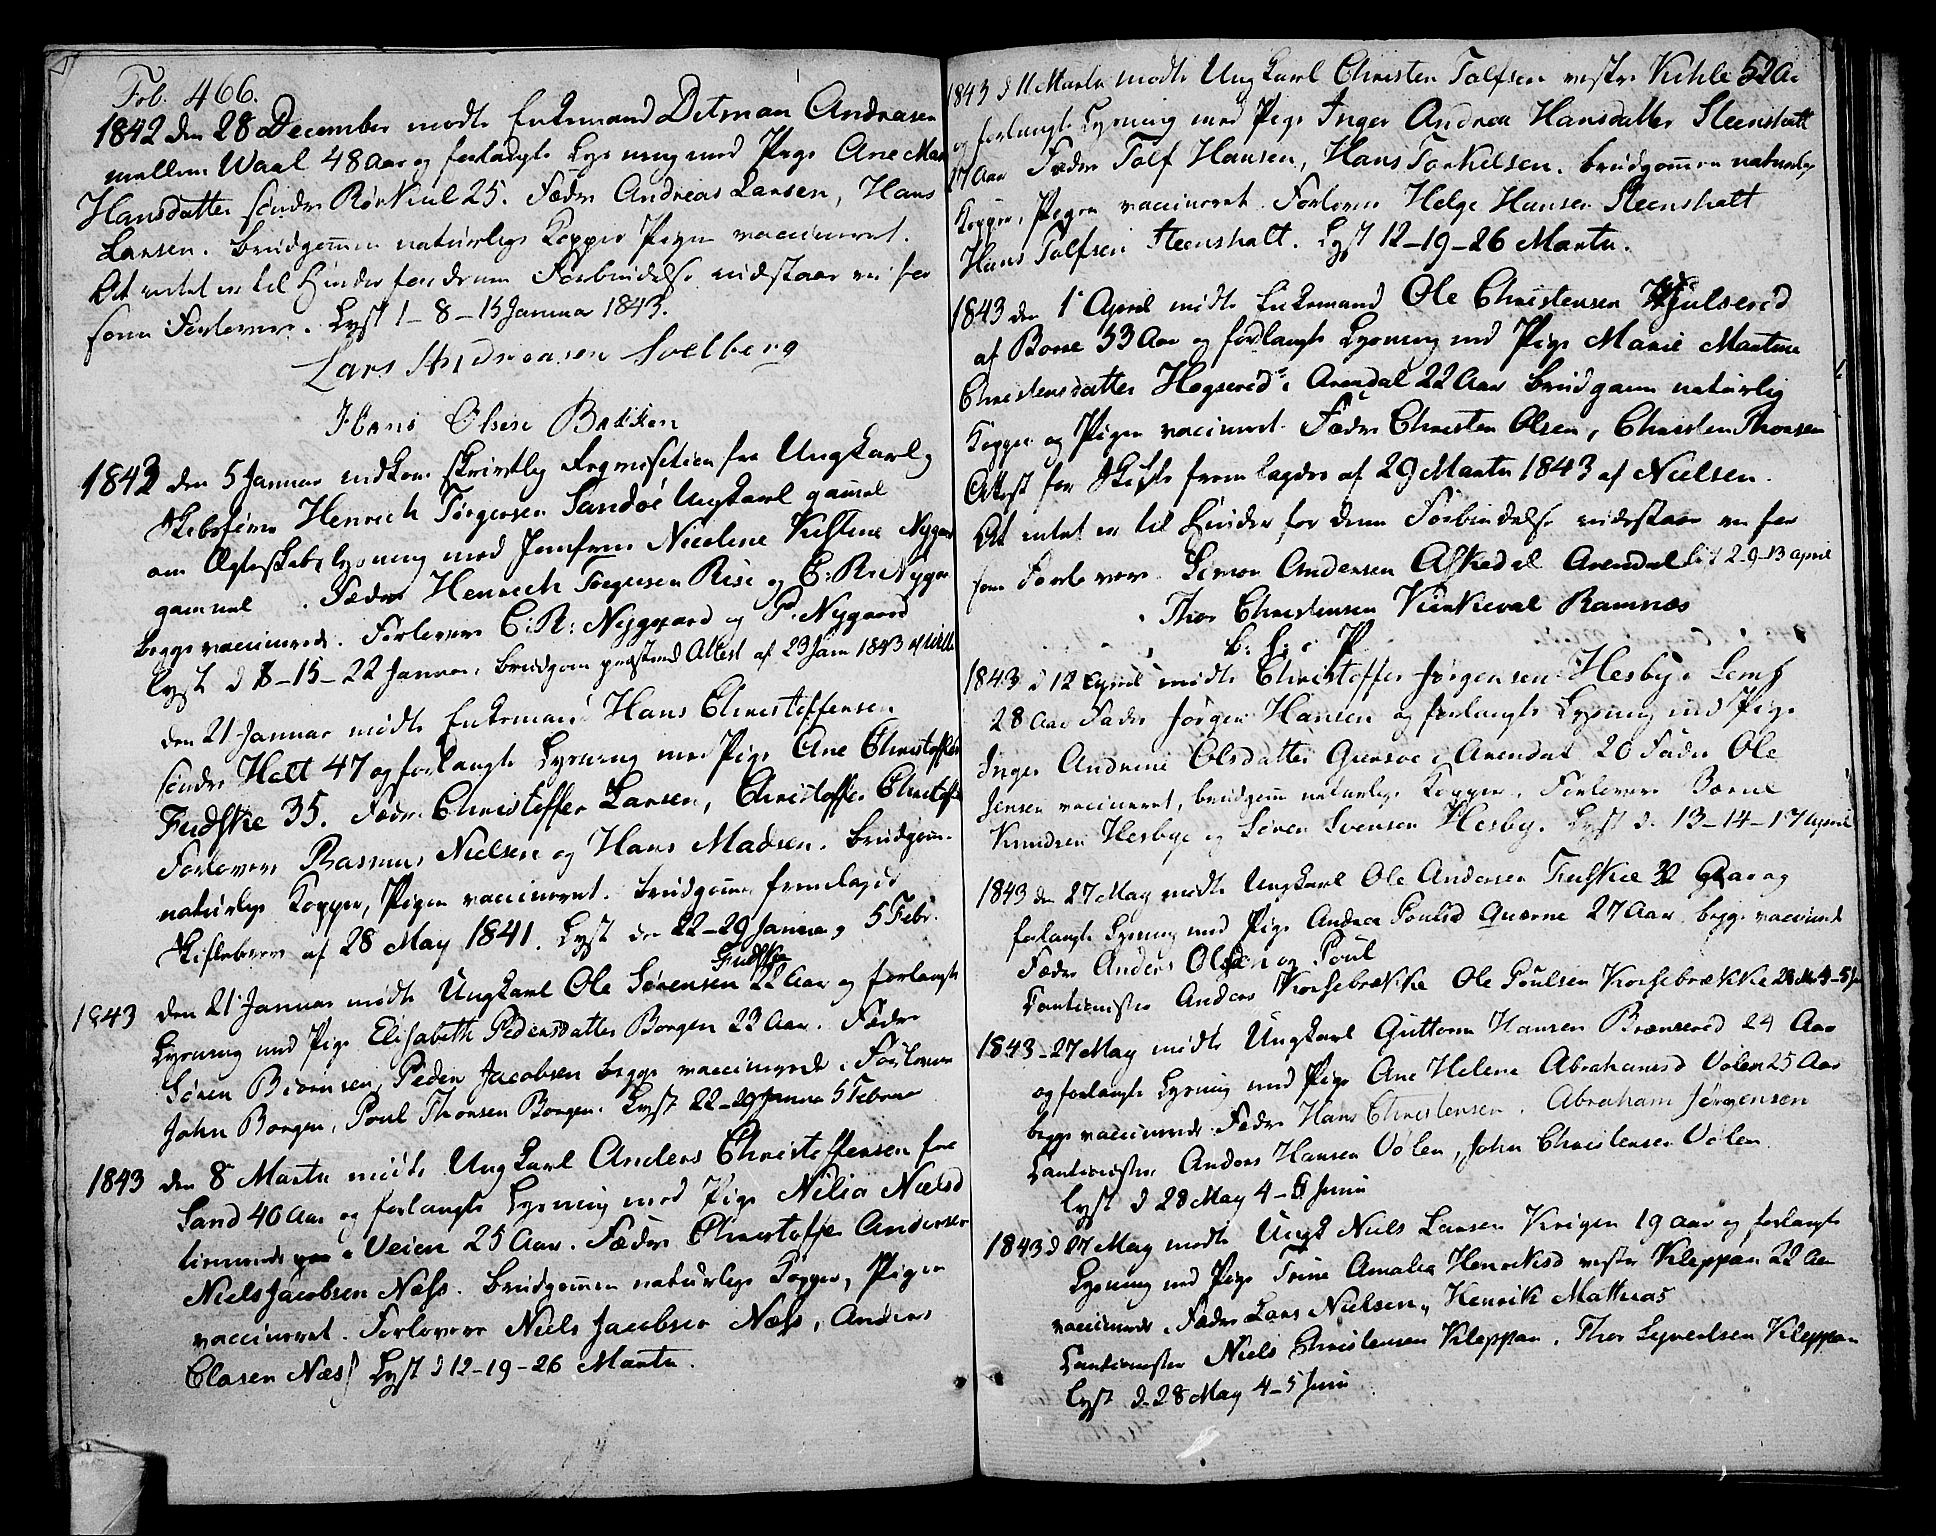 Fol. 466.
1842 den 28 December mødte Enkemand Ditman Andreasen
mellem Waal 48 Aar og forlangte Lysning med Pige Ane Mar
Hansdatter søndre Rørkiul 25. Fædre Andreas Larsen, Hans
Larsen. Brudgommen naturlige Kopper Pigen vaccineret.
At intet er til Hinder for denne Forbindelse indstaar vi for
som Forlovere. Lyst 1-8-15 Januar 1843.
Lars Andreasen Solberg
Hans Olsen Bakken
1843 den 5 Januar indkom skrivtlig Reqvisition fra Ungkarl
Skibsfører Henrich Torgersen Sandøe Ungkarl gammel
om Ægteskabslysning med Jomfrue Nicoline Kistine Nygaar
gammel . Fædre Henrich Torgersen Rise og C: R: Nygaa
begge vaccinerede. Forlovere C: R: Nygaard og P. Nygaard
Lyst d 8-15-22 Januar. Brudgom Attest af 23 Jan 1843 af
den 21 Januar mødte Enkemand Hans Christoffersen
søndre Hatt 47 og forlangte Lysning med Pige Ane Christoffer
Fudske 35. Fædre Christoffer Larsen, Christoffer Christoff
Forlovere Rasmus Nielsen og Hans Madsen. Brudgom
naturlige Kopper, Pigen vaccineret. Brudgommen fremlagde
Skiftebrev af 28 May 1841. Lyst den 22-29 Januar, 5 Febr.
Fudske
1843 den 21 Januar mødte Ungkarl Ole Sørensen 22 Aar og forlangte
Lysning med Pige Elisabeth Pedersdatter Borgen 23 Aar. Fædre
Søren Biørnsen, Peder Jacobsen begge vaccinerede. Forlovere
John Borgen, Poul Thorsen Borgen. Lyst 22-29 Janua 5 Februar
1843 den 8 Marts mødte Ungkarl Anders Christoffersen fra
Sand 40 Aar og forlangte Lysning med Pige Nilia Nielsd
tienende paa Veien 25 Aar. Fædre Christoffe Andersen
Niels Jacobsen Næss. Brudgommen naturlige Kopper, Pigen
vaccineret. Forlovere Niels Jacobsen Næss, Anders
Clasen Næss Lyst d 12-19-26 Marts.
1843 d 11 Marts mødte Ungkarl Christen Tolfsen vestre Kihle 52 Aa
og forlangte Lysning med Pige Inger Andrea Hansdatter Steenshatt
17 Aar Fædre Tolf Hansen, Hans Torkilsen. Brudgommen naturlig
Kopper, Pigen vaccineret. Forlovere Helge Hansen Steenshatt
Hans Tolfsen Steenshatt. Lyst 12-19-26 Marts.
1843 den 1 April mødte Enkemand Ole Christensen Hiulserød
af Borre 53 Aar og forlangte Lysning med Pige Marie Martine
Christensdatter Hogserød i Arendal 22 Aar Brudgom naturlig
Kopper og Pigen vaccineret. Fædre Christen Olsen, Christen Thorsen
Attest for Skifte fremlagdes af 29 Marts 1843 af Nielsen.
At intet er til Hinder for denne Forbindelse indestaar vi for
som Forlovere. Simon Andersen Askedal Arendal Lyst 2-9-13 April
Thor Christensen Kirkeval Ramnæs
1843 d 12 April mødte Christoffer Jørgensen Hesby i Sem
28 Aar Fader Jørgen Hansen og forlangte Lysning med Pige
Inger Andrine Olsdatter i Arendal 20 Fader Ole
Jensen vaccineret, Brudgom naturlige Kopper. Forlovere
Knudsen Hesbye og Søren Svensen Hesby. Lyst d. 13-14-17 April
1843 den 27 May mødte Ungkarl Ole Andersen Fudskie 32 Aar og
forlangte Lysning med Pige Andrea Poulsd Qverne 27 Aar begge vaccinerede
Fædre Anders Olsen og Poul
Cautionister Anders Korsebrække Ole Poulsen Korsebrække 28 Mai 4-5 Jun
1843-27 May mødte Ungkarl Guttorm Hansen Brænserød 24 Aar
og forlangte Lysning med Pige Ane Helene Abrahamsd Vølen 25 Aar
begge vaccinerede Fædre Hans Christensen, Abraham Jørgensen
Cautionister Anders Hansen Vølen, John Christensen Vølen
Lyst d 28 May 4-5 Juni
1843 d 27 May mødte Ungk Niels Larsen Krigen 19 Aar og forlangte
Lysning med Pige Trine Amalia Henriksd vestre Kleppan 22 Aar
vaccinerede. Fædre Lars Nielsen, Henrik Mathias
Cautionister Niels Christensen Kleppan. Thor Syvertsen Kleppan
Lyst d. 28 May 4-5 Juni